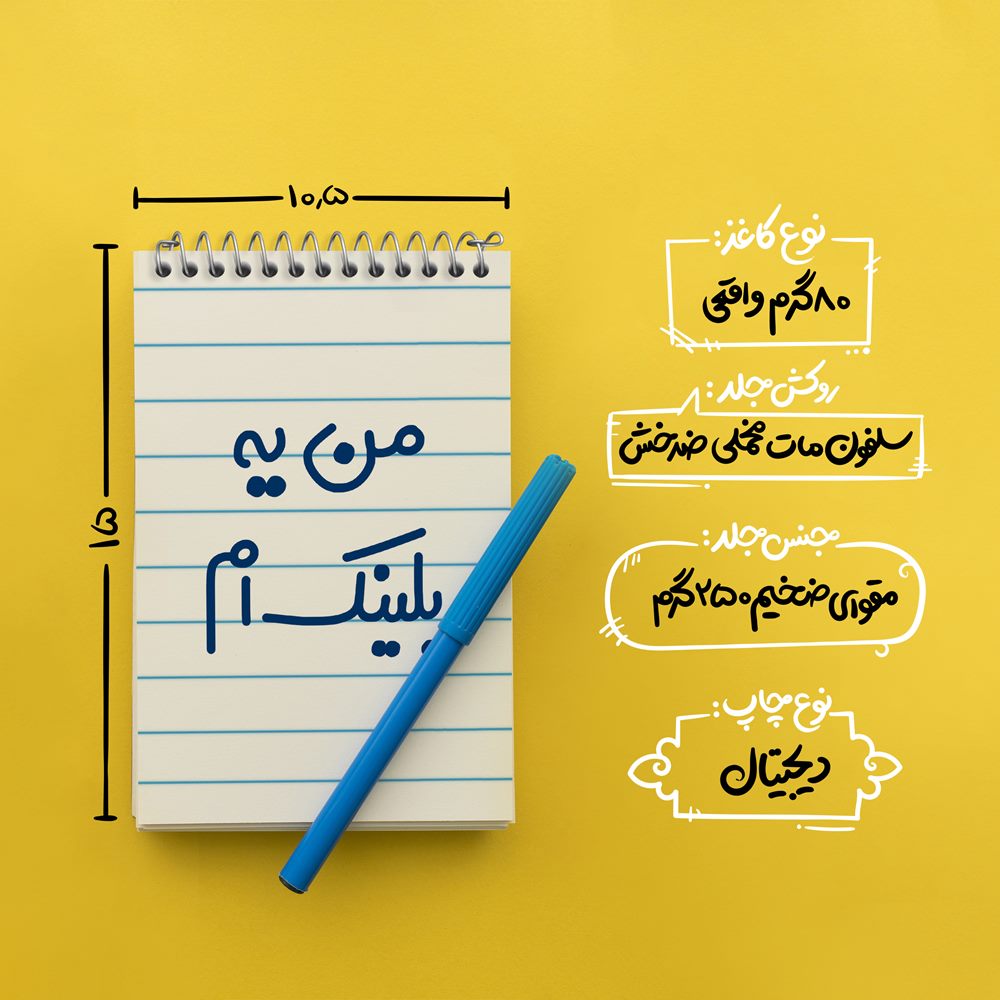 ۱۰,۵
۱۵
من یه
بلینک ام
نوع کاغذ:
۸۰ گرم واقعی
روکش جلد:
سلفون مات مخملی ضدخش
جنس جلد:
مقوای ضخیم ۲۵۰ گرم
نوع چاپ:
دیجیتال